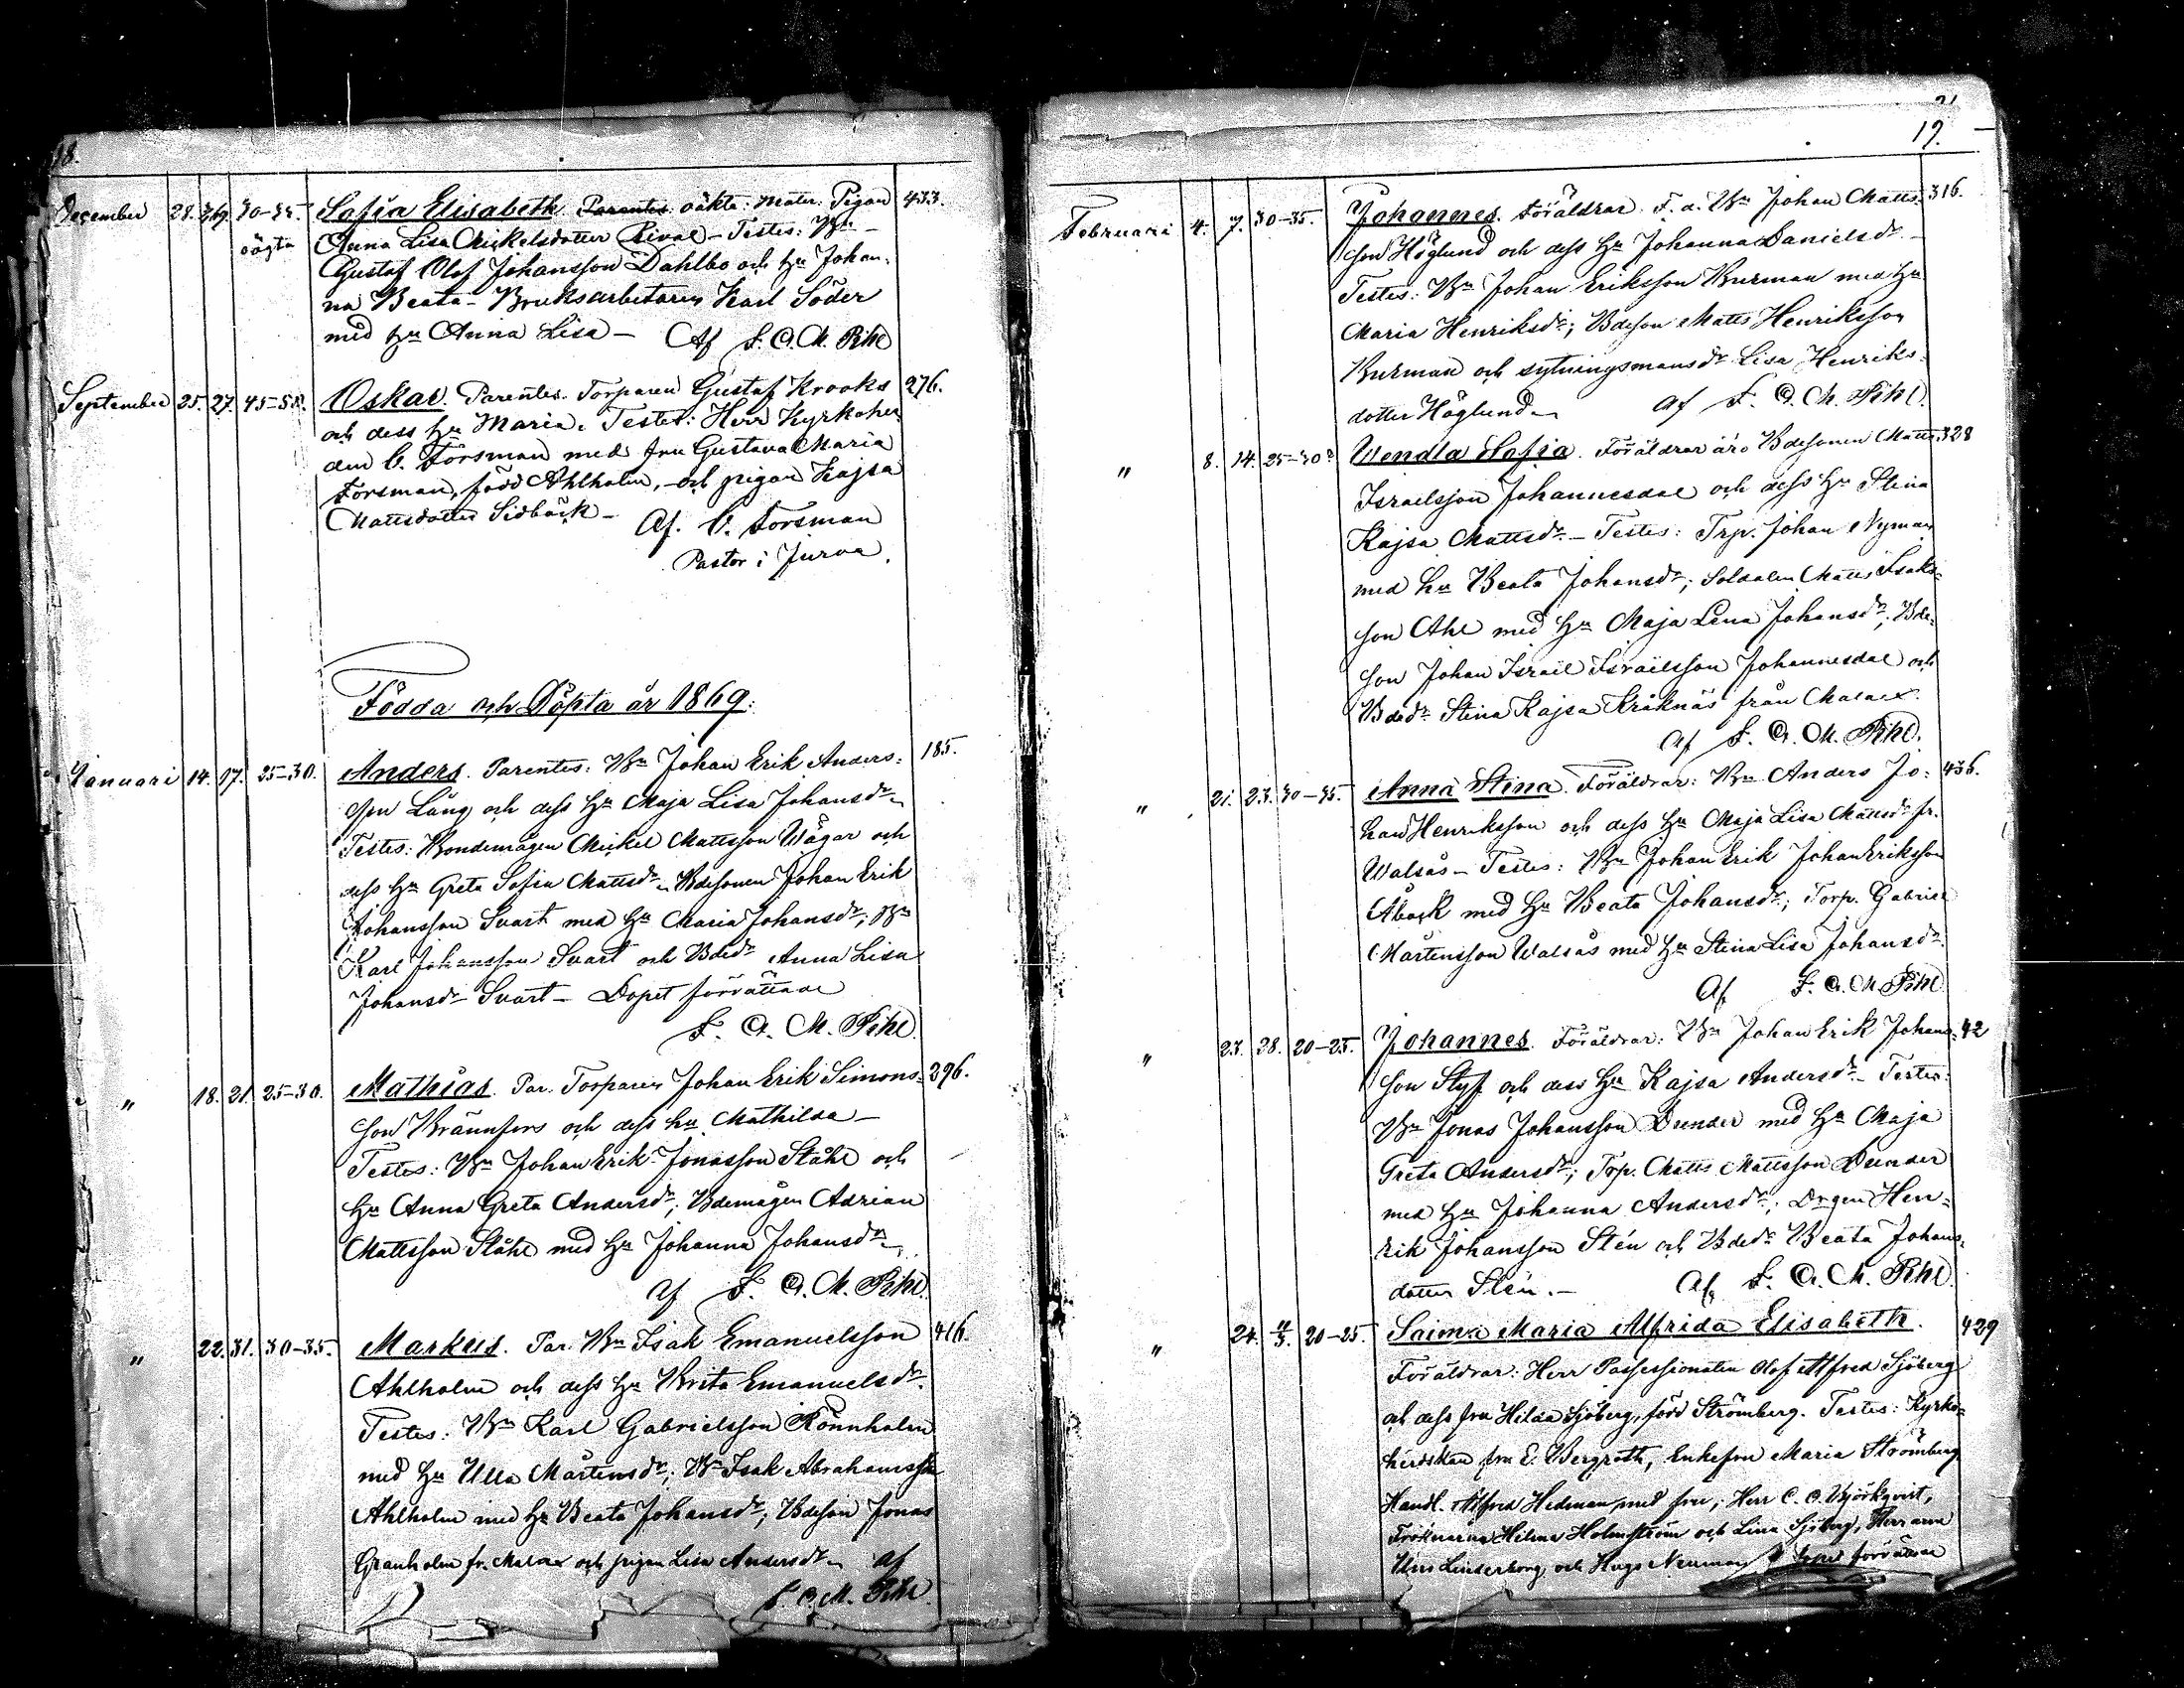 18.
December 28. 3/69. 30-35. Sofia Elisabeth. Parentes. oäkta: Mater: Pigan 433.
oägta Anna Lisa Mickelsdotter Rival - Testes: Bn
Gustaf Olof Johansson Dahlbo och hu Johan-
na Beata - Bruksarbetaren Karl Söder
med hu Anna Lisa - Af F. O. M. Pihl
September 25. 27. 45-50. Oskar. Parentes. Torparen Gustaf Krooks 276.
och dess hu Maria. Testes: Herr Kyrkoher-
den C. Forsman med fru Gustava Maria
Forsman, född Ahlholm, - och pigan Kajsa
Mattsdotter Sidbäck - Af. C. Forsman
Pastor i Jurva.
Födda och Döpta år 1869.
Januari 14. 17. 25-30. Anders. Parentes: Bn Johan Erik Anders- 185.
son Lång och dess hu Maja Lisa Johansdr
Testes: Bondemågen Mickel Mattsson Wågar och
dess hu Greta Sofia Mattsdr. Bdesonen Johan Erik
Johansson Svart med hu Maria Johansdr; Bn
Karl Johansson Svart och Bdedr Anna Lisa
Johansdr Svart - Dopet förrättade
F. O. M. Pihl.
" 18. 21. 25-30. Mathias. Par. Torparen Johan Erik Simons- 396.
son Brännfors och dess hu Mathilda -
Testes: Bn Johan Erik Jonasson Ståhl och
hu Anna Greta Andersdr; Bdemågen Adrian
Mattsson Ståhl med hu Johanna Johansdr
af F. O. M. Pihl.
" 22. 31. 30-35. Markus. Par. Bn Isak Emanuelsson 416.
Ahlholm och dess hu Brita Emanuelsdr.
Testes: Bn Karl Gabrielsson Rönnholm
med hu Ulla Mårtensdr; Bn Isak Abrahamsson
Ahlholm med hu Beata Johansdr; Bdeson Jonas
Granholm fr. Malax och pigan Lisa Andersdr. af
F. O. M. Pihl.
19.
Februari 4. 7. 30-35. Johannes. Föräldrar. F. d. Bn Johan Matts- 316.
son Höglund och dess hu Johanna Danielsdr -
Testes: Bn Johan Eriksson Burman med hu
Maria Henriksdr; Bdeson Matts Henriksson
Burman och sytningsmansdr Lisa Henriks-
dotter Höglund. af F. O. M. Pihl.
" 8. 14. 25-30. Wendla Sofia. Föräldrar äro Bdesonen Matts 328
Israelsson Johannesdal och dess hu Stina
Kajsa Mattsdr. - Testes: Trp. Johan Nyman
med hu Beata Johansdr; Soldaten Matts Isaks-
son Ahl med hu Maja Lena Johansdr; Bde-
son Johan Israel Israelsson Johannesdal och
Bdedr Stina Kajsa Kråknäs från Malax.
af F. O. M. Pihl.
" 21. 23. 30-35. Anna Stina. Föräldrar: Bn Anders Jo- 436.
han Henriksson och dess hu Maja Lisa Mattsdr fr.
Walsås - Testes: Bn Johan Erik Johan Eriksson
Åback med hu Beata Johansdr; Torp. Gabriel
Mårtensson Walsås med hu Stina Lisa Johansdr.
Af F. O. M. Pihl
" 23. 28. 20-25. Johannes. Föräldrar: Bn Johan Erik Johans- 42
son Styf och dess hu Kajsa Andersdr - Testes:
Bn Jonas Johansson Dunder med hu Maja
Greta Andersdr; Trp. Matts Mattsson Dunder
med hu Johanna Andersdr; Drgen Hen-
rik Johansson Stén och Bdedr Beata Johans-
dotter Stén. - Af F. O. M. Pihl.
" 24. 20-25. Saima Maria Alfrida Elisabeth. 429
Föräldrar: Herr Possessionaten Olof Alfred Sjöberg
och dess fru Hilda Sjöberg, född Strömberg. Testes: Kyrko-
herdskan fru E. Bergroth, Enkefru Maria Strömberg
Handl. Alfred Hedman med fru; Herr C. O. Björkqvist,
Fröknarna Hilma Holmström och Lina Sjöberg, Herrarne
Linderborg och Hugo Neuman förrättade